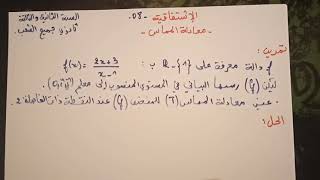 السنة الثانية والثالثة
ثانوي جميع الشعب.
الإشتقاقية - 08.
- معادلة المماس -
تمرين:
f دالة معرفة على R-{1} ب: f(x) = 2x+3 / x-1
ليكن (Cf) رسمها البياني في المستوي المنسوب إلى معلم
• عين معادلة المماس (T) للمنحنى (Cf) عند النقطة ذات الفاصلة 2.
الحل: